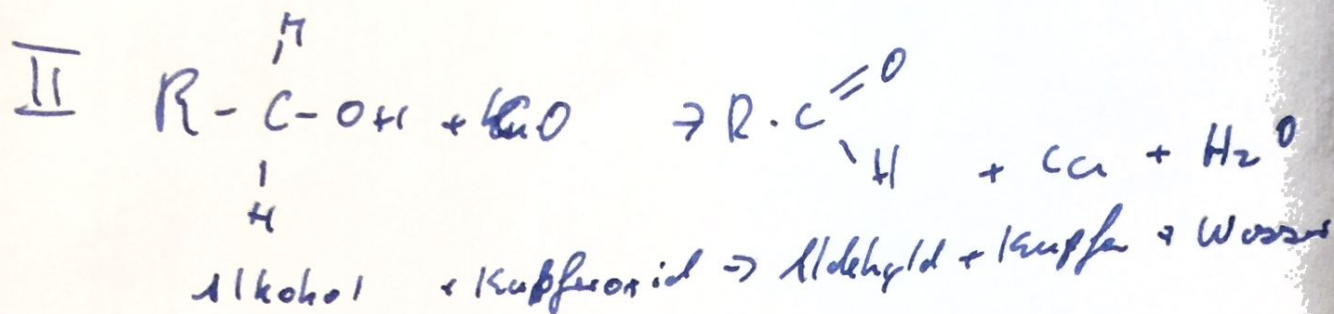 H
II R - C - OH + CuO → R - C = O
H H + Cu + H2O
Alkohol + Kupferoxid → Aldehyd + Kupfer + Wasser